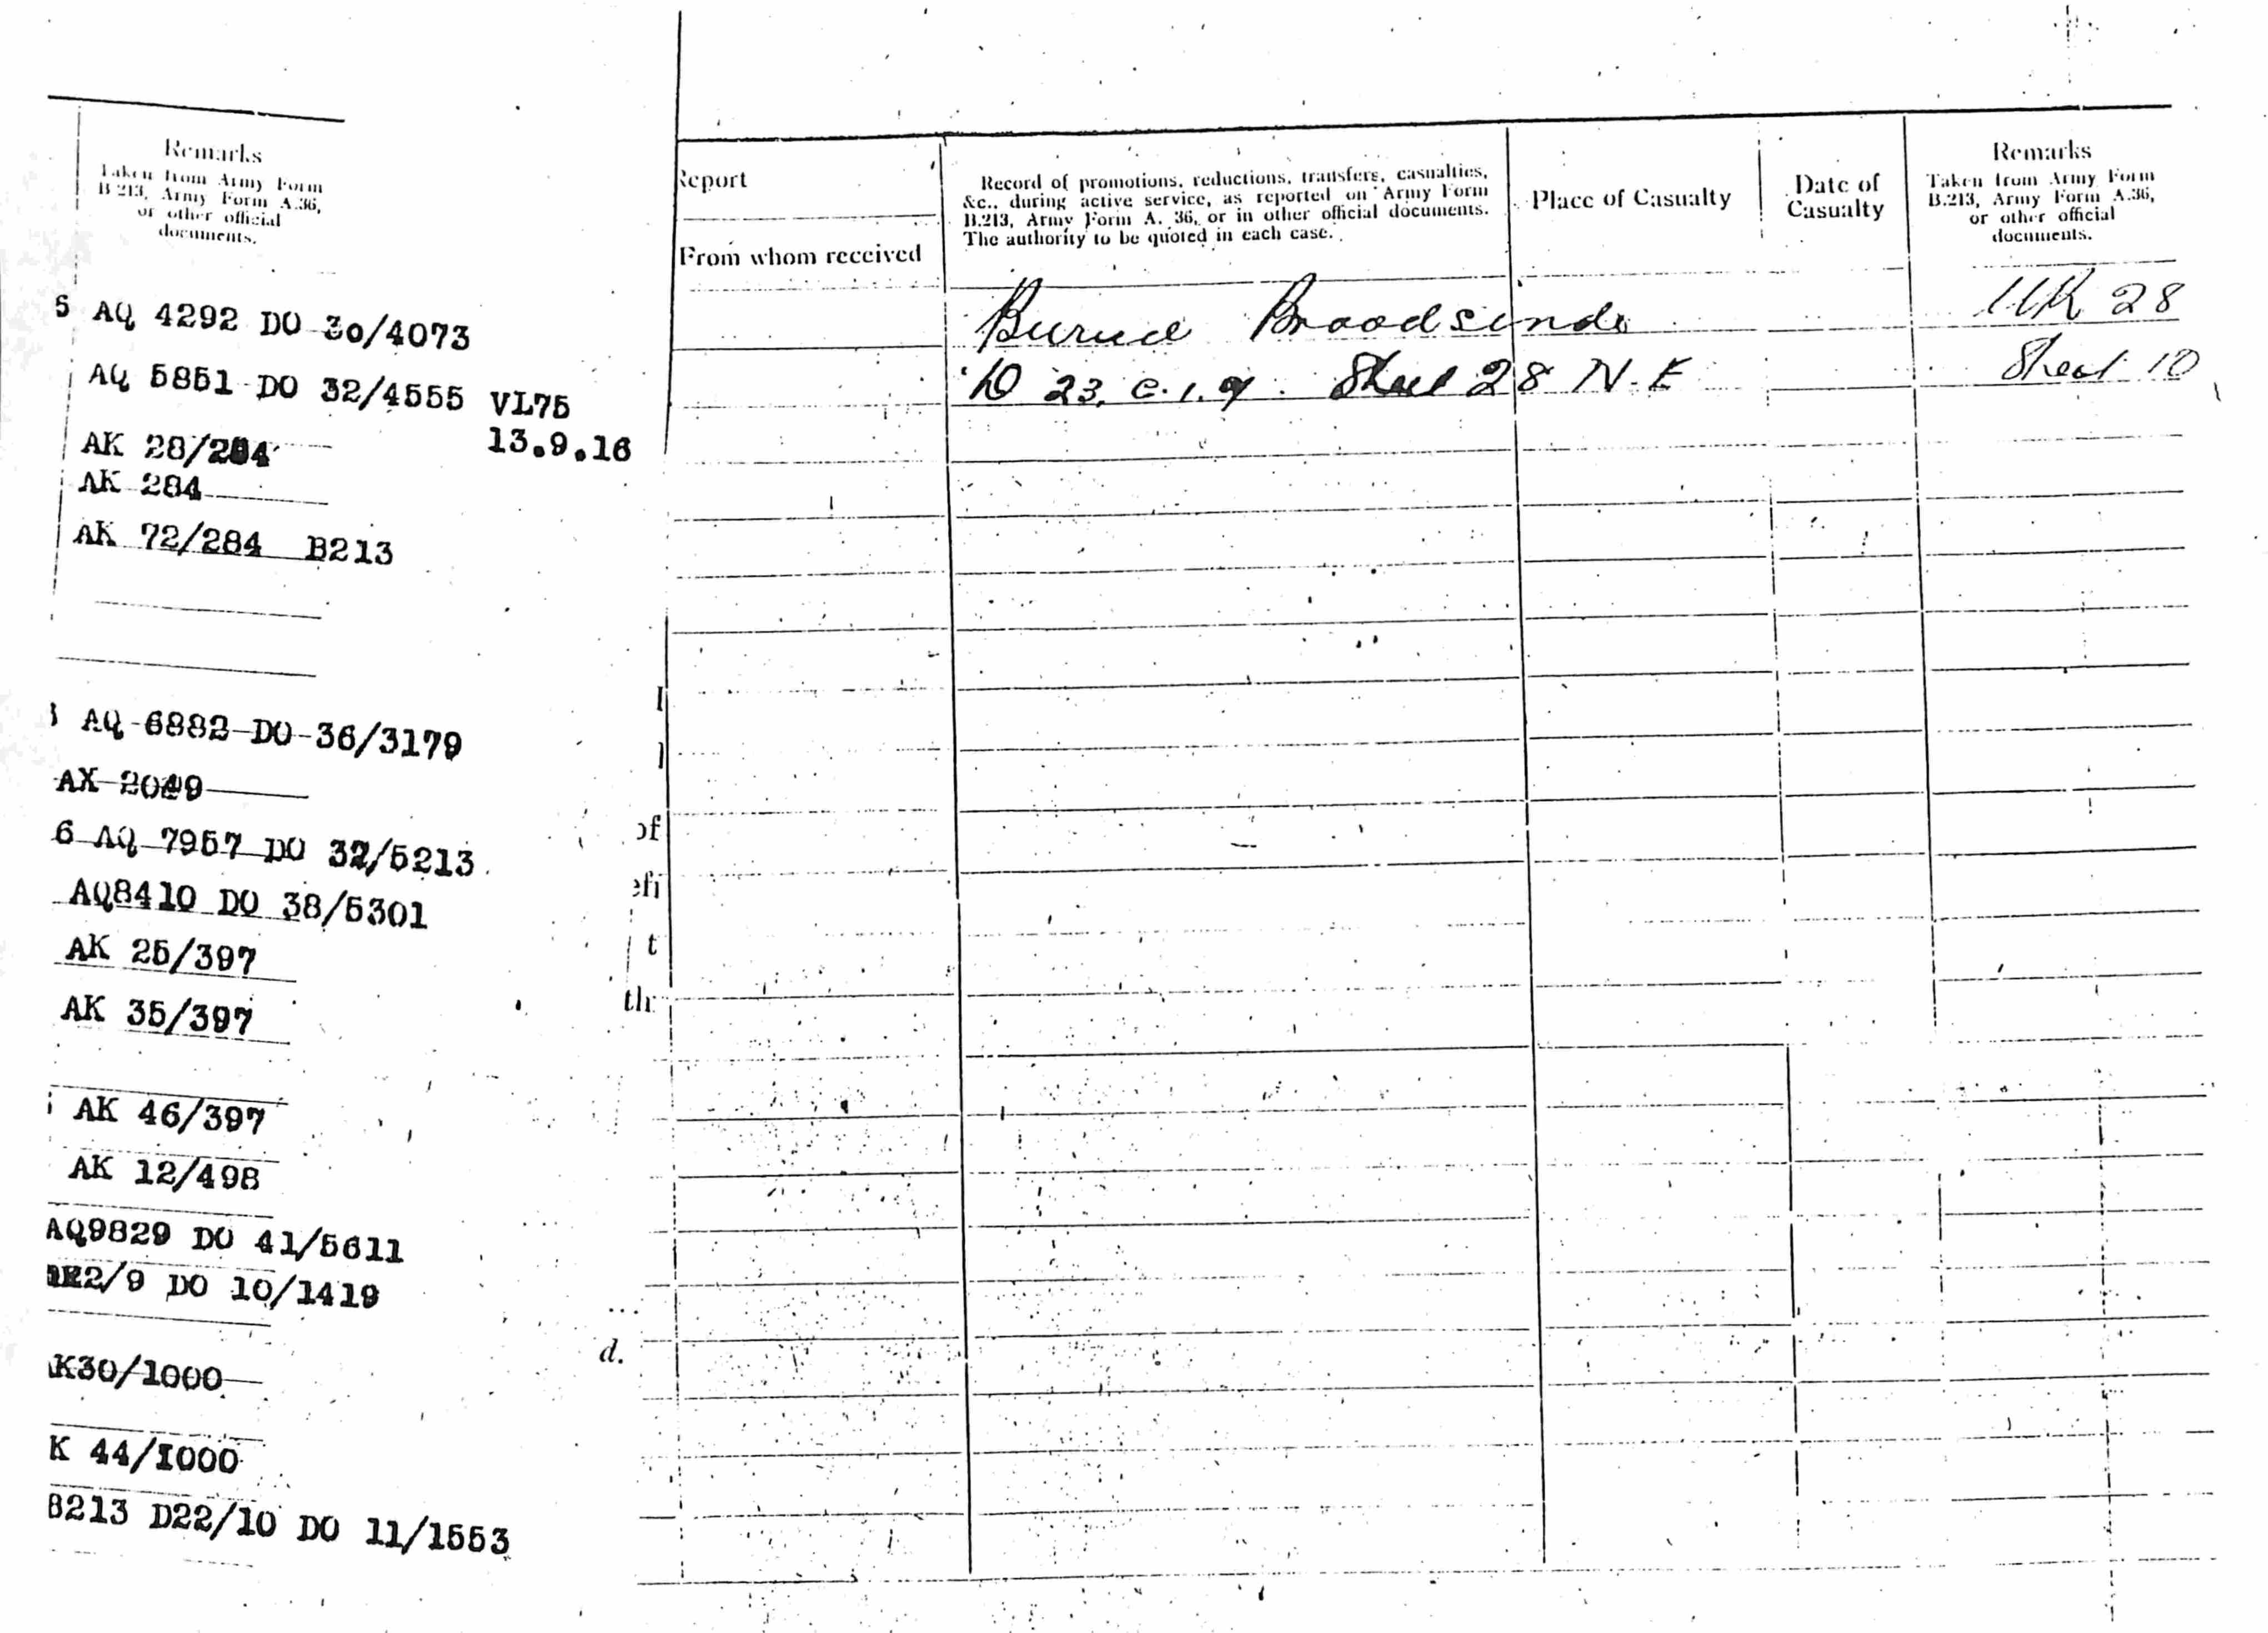 Remarks
Taken from Army Form
B 213, Army Form A.36,
or other official
documents.
5 AQ 4292 DO 30/4073
AQ 5851 DO 32/4555 VL75
13.9.16
AK 28/284
AK 284
AK 72/284 B213
AQ 6882 DO 36/3179
AX 2049
6 AQ 7957 DO 32/5213
AQ8410 DO 38/5301
AK 25/397
AK 35/397
AK 46/397
AK 12/498
AQ9829 DO 41/5611
2/9 DO 10/1419
K30/1000
K 44/1000
B213 D22/10 DO 11/1553
of
efi
t
th
...
d.
Report
From whom received
Record of promotions, reductions, transfers, casualties,
&c., during active service, as reported on Army Form
B.213, Army Form A. 36, or in other official documents.
The authority to be quoted in each case.
Place of Casualty
Date of
Casualty
Remarks
Taken from Army Form
B.213, Army Form A.36,
or other official
documents.
Buried Broodseinde
UK 28
D 23. c. 1. 9. Sheet 28 N.E
Sheet 10